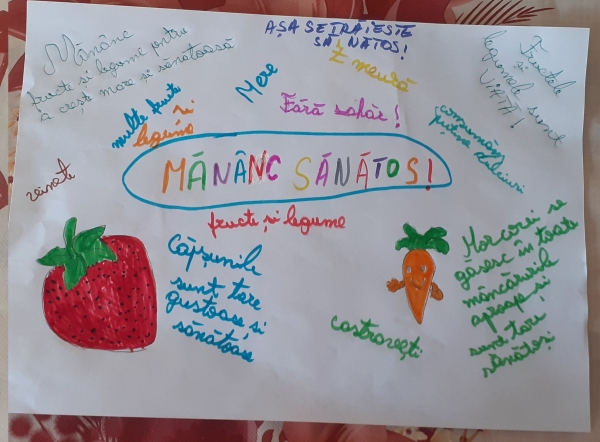 AȘA SE TRĂIEȘTE
SĂNĂTOS!
Mănânc
fructe și legume pentru
a crește mare și sănătoasă
Zmeură
Fructele
și
legumele sunt
VIAȚĂ!
Mere
multe fructe
și
legume
Fără zahăr!
consumăm
puține dulciuri
MĂNÂNC SĂNĂTOS!
fructe și legume
Căpșunile
sunt tare
gustoase și
sănătoase
Morcovii se
găsesc în toate
mâncărurile
aproape și
sunt tare
sănătoși
castraveți